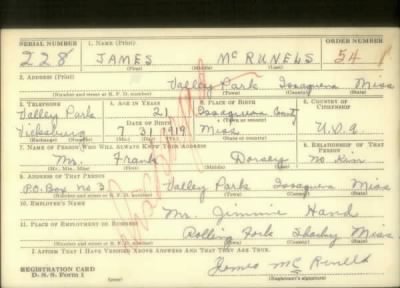 SERIAL NUMBER 1. NAME (Print) ORDER NUMBER
228 JAMES McRUNELS 54
(First) (Middle) (Last)
2. ADDRESS (Print)
Valley Park Issaquena Miss
(Number and street or R. F. D. number) (Town) (County) (State)
3. TELEPHONE 4. AGE IN YEARS 5. PLACE OF BIRTH 6. COUNTRY OF CITIZENSHIP
Valley Park 21 Issaquena County
DATE OF BIRTH
Vicksburg 7 31 1919 Miss U.S.A
(Exchange) (Number) (Mo.) (Day) (Yr.) (State or country)
7. NAME OF PERSON WHO WILL ALWAYS KNOW YOUR ADDRESS 8. RELATIONSHIP OF THAT PERSON
Mr. Frank Dorsey No Kin
(Mr., Mrs., Miss) (First) (Middle) (Last)
9. ADDRESS OF THAT PERSON
P.O. Box No 3 Valley Park Issaquena Miss
(Number and street or R. F. D. number) (Town) (County) (State)
10. EMPLOYER'S NAME
Mr. Jimmie Hand
11. PLACE OF EMPLOYMENT OR BUSINESS
Rolling Fork Sharkey Miss
(Number and street or R. F. D. number) (Town) (County) (State)
I AFFIRM THAT I HAVE VERIFIED ABOVE ANSWERS AND THAT THEY ARE TRUE.
REGISTRATION CARD James Mc Runels
D. S. S. Form 1 (over) (Registrant's signature)